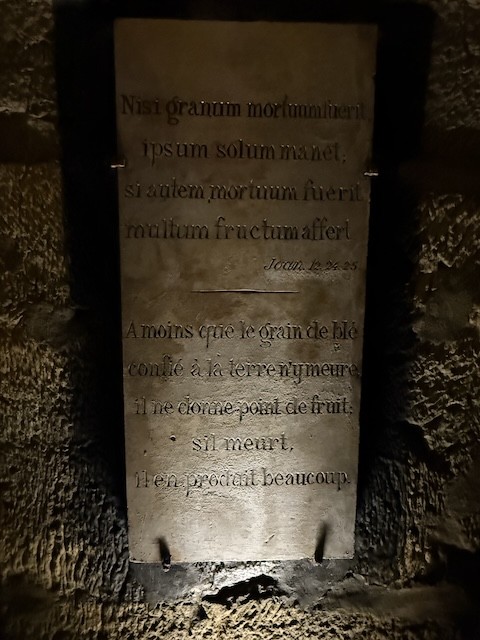 Nisi granum mortuum fuerit,
ipsum solum manet,
si autem mortuum fuerit
multum fructum affert
Joan. 12. 24. 25
A moins que le grain de blé
confié à la terre n'y meure
il ne donne point de fruit;
s'il meurt,
il en produit beaucoup.